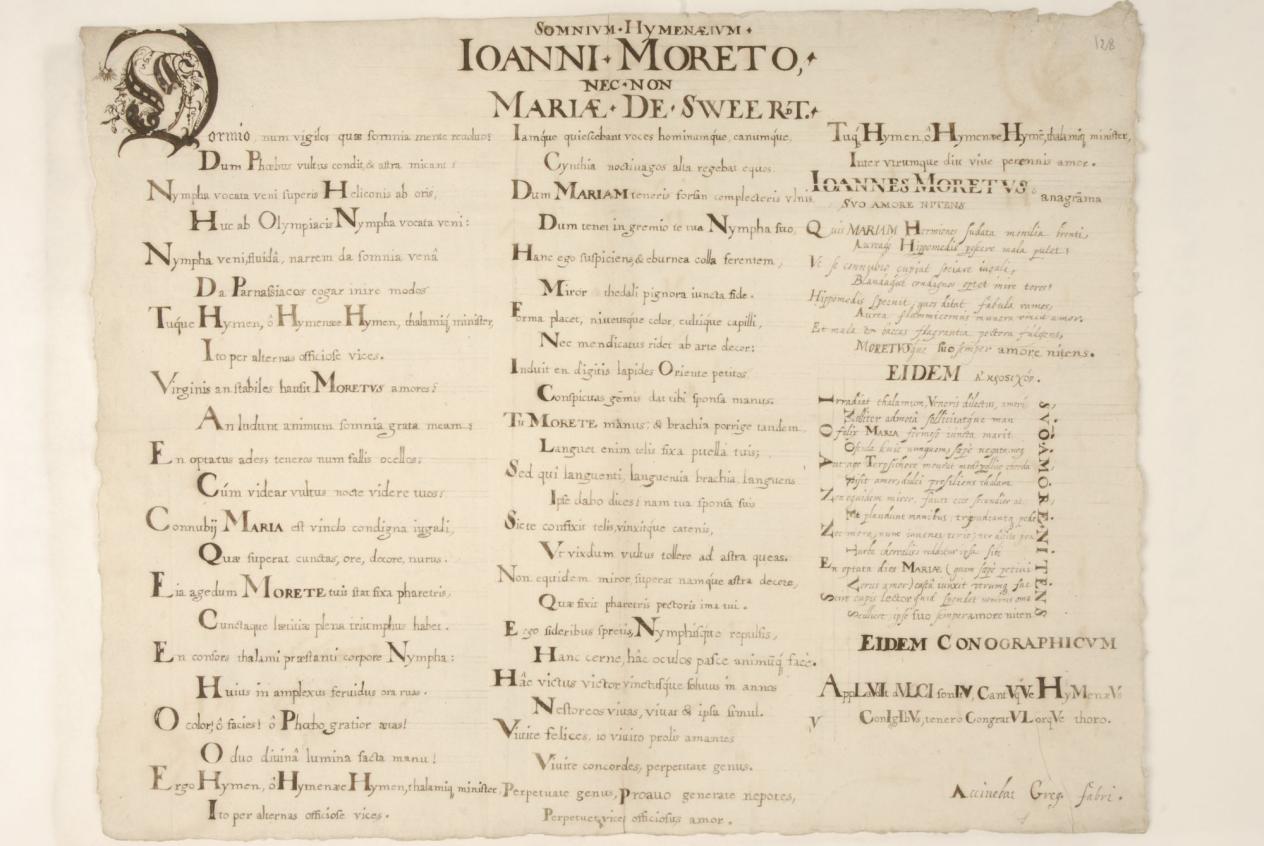 128
SOMNIVM · HYMENÆIVM ·
IOANNI · MORETO,
NEC · NON
MARIÆ · DE · SWEERT.
Dormio, num vigilo; quæ somnia mente
Dum Phœbus vultus condit, & astra micant?
Nympha vocata veni superis Heliconis ab oris,
Huc ab Olympiacis Nympha vocata veni:
Nympha veni, narrem da somnia venâ
Da Parnassiacos cogar inire modos
Tuque Hymen, ô Hymenæe Hymen, thalamiq; minister,
Ito per alternas officiose vices.
Virginis an stabiles hausit MORETVS amores?
An ludunt animum somnia grata meum?
En optatus ades; teneros num fallis ocellos:
Cúm videar vultus nocte videre tuos?
Connubij MARIA est vinclo condigna iugali,
Quæ superat cunctas, ore, decore, nurus.
Eia agedum MORETE tuis stat fixa pharetris,
Cunctaque lætitiæ plena triumphus habet.
En consors thalami præstanti corpore Nympha:
Huius in amplexus feruidus ora ruas.
O color! ô facies! ô Phœbo gratior ætas!
O duo divinâ lumina facta manu!
Ergo Hymen, ô Hymenæe Hymen, thalamiq; minister,
Ito per alternas officiose vices.
Iamque quiescebant voces hominumque, canumque,
Cynthia noctiuagos alta regebat equos.
Dum MARIAM teneris forsan complecteris vlnis
Dum tenet in gremio te tua Nympha suo,
Hanc ego suspiciens, & eburnea colla ferentem,
Miror thedali pignora iuncta fide.
Forma placet, niueusque color, cultique capilli,
Nec mendicatus ridet ab arte decor:
Induit en digitis lapides Oriente petitos
Conspicuas gemis dat tibi sponsa manus.
Tu MORETE manus; & brachia porrige tandem
Languet enim telis fixa puella tuis;
Sed qui languenti, languentia brachia, languens
Ipse dabo dices? nam tua sponsa suis
Sic te confixit telis, vinxitque catenis,
Vt vixdum vultus tollere ad astra queas.
Non equidem miror, superat namque astra decore,
Quæ fixit pharetris pectoris ima tui.
Ergo sideribus spretis, Nymphisque repulsis,
Hanc cerne, hâc oculos pasce animūq; face.
Hâc victus victor, vinctusque solutus in annos
Nestoreos viuas, viuat & ipsa simul.
Viuite felices, io viuito prolis amantes
Viuite concordes, perpetuate genus.
Perpetuate genus, proauo generate nepotes,
Perpetuet vices officiosus amor.
Tuq; Hymen, ô Hymenæe Hymē, thalamiq; minister,
Inter vtrumque diu viue perennis amor.
IOANNES MORETVS
anagrāma
SVO AMORE NITENS
Quis MARIAM Hermiones sudata monilia
Aureaq; Hippomedis poscere mala putet?
Vt se connubio cupiat sociare iugali,
Blandaque condignos optet inire toros?
Hippomedis spernit, quos ditat fabula ramos,
Aurea flammicomus munera vincit amor.
Et mala & baccas flagrantia pectora fulgens,
MORETVSque suo semper amore nitens.
EIDEM
Irradiat thalamum, Veneris dilectus, amori
admotâ sollicitatque man
felix MARIA iuncta marit
Oscula huic nunquam, sæpe negate
age Terpsichore
amor, dulci prosiliens thalam
Non equidem miror,
Et plaudunt manibus,
Nec mora, nunc iuuenes
En optata dies MARIÆ (quam sæpè petiui
amor) castâ iunxit
Scire cupis lector quid
ipse suo semper amore niten
IOANNES
SVO AMORE NITENS
EIDEM CONOGRAPHICVM
CantVqVe HyMenæVs
ConIgIbVs, tenero CongratVLorqVe thoro.
Accinebat Greg. fabri.